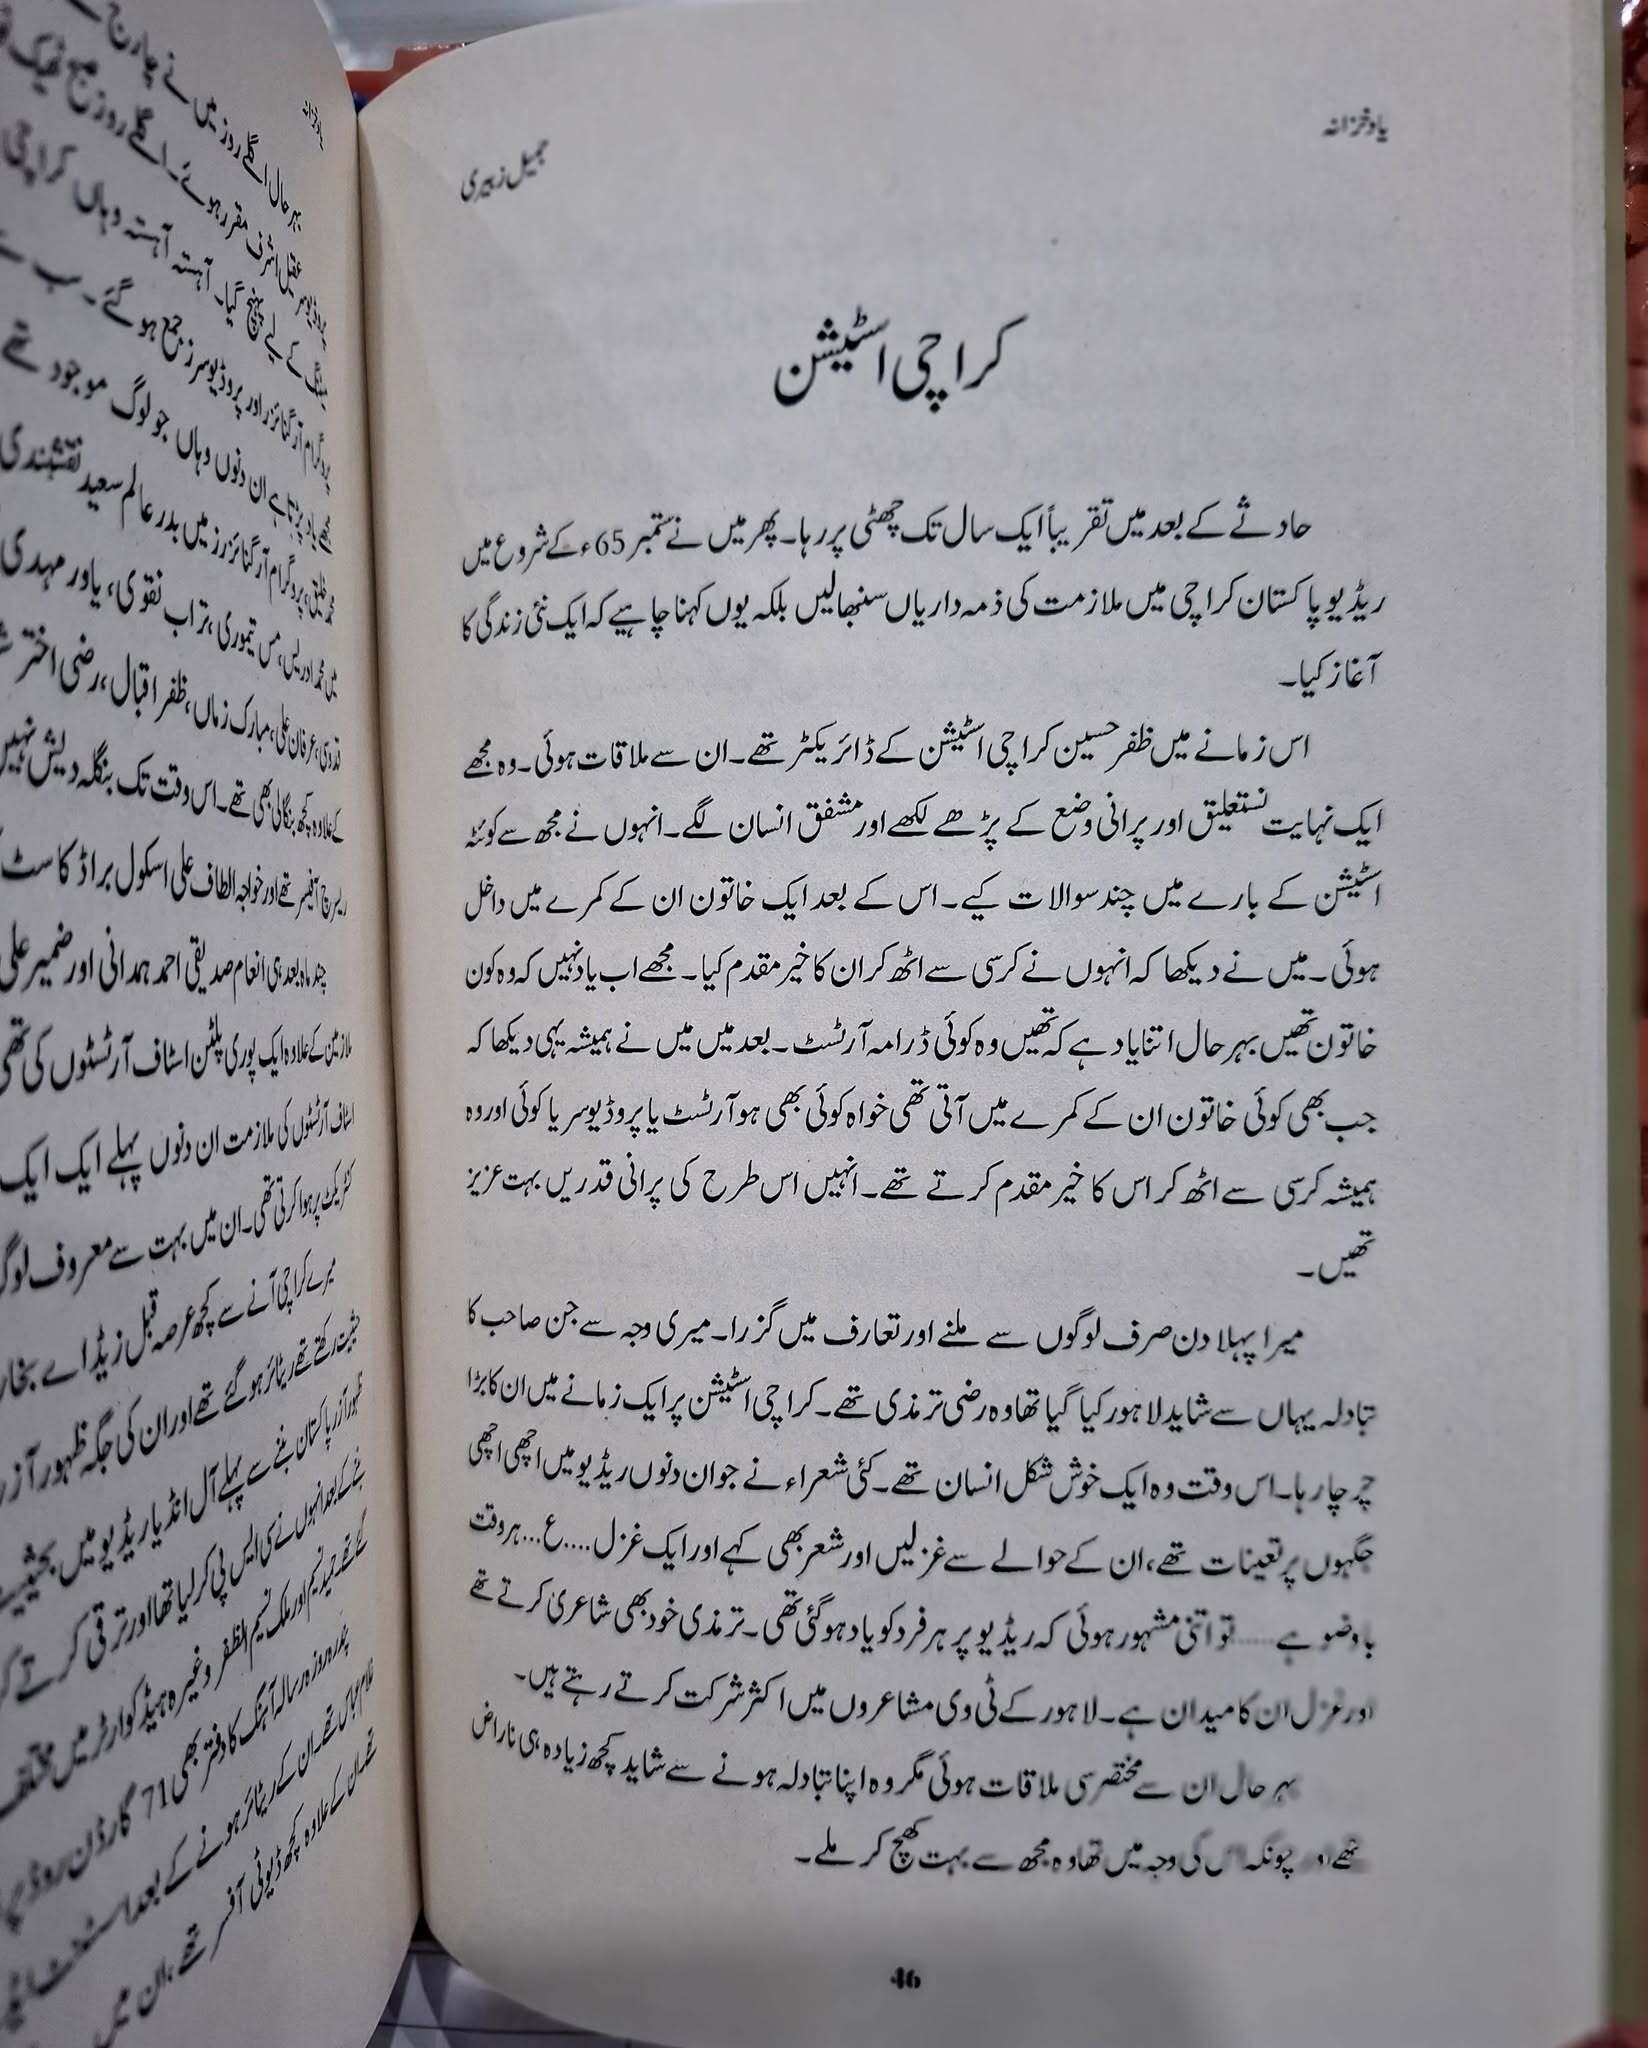 یاد خزانہ
جمیل زبیری
کراچی اسٹیشن
حادثے کے بعد میں تقریباً ایک سال تک چھٹی پر رہا۔ پھر میں نے ستمبر 65ء کے شروع میں
ریڈیو پاکستان کراچی میں ملازمت کی ذمہ داریاں سنبھالیں بلکہ یوں کہنا چاہیے کہ ایک نئی زندگی کا
آغاز کیا۔
اس زمانے میں ظفر حسین کراچی اسٹیشن کے ڈائریکٹر تھے۔ ان سے ملاقات ہوئی۔ وہ مجھے
ایک نہایت نستعلیق اور پرانی وضع کے پڑھے لکھے اور مشفق انسان لگے۔ انہوں نے مجھ سے کوئٹہ
اسٹیشن کے بارے میں چند سوالات کیے۔ اس کے بعد ایک خاتون ان کے کمرے میں داخل
ہوئی۔ میں نے دیکھا کہ انہوں نے کرسی سے اٹھ کر ان کا خیر مقدم کیا۔ مجھے اب یاد نہیں کہ وہ کون
خاتون تھیں بہر حال اتنا یاد ہے کہ تھیں وہ کوئی ڈرامہ آرٹسٹ۔ بعد میں میں نے ہمیشہ یہی دیکھا کہ
جب بھی کوئی خاتون ان کے کمرے میں آتی تھی خواہ کوئی بھی ہو آرٹسٹ یا پروڈیوسر یا کوئی اور وہ
ہمیشہ کرسی سے اٹھ کر اس کا خیر مقدم کرتے تھے۔ انہیں اس طرح کی پرانی قدریں بہت عزیز
تھیں۔
میرا پہلا دن صرف لوگوں سے ملنے اور تعارف میں گزرا۔ میری وجہ سے جن صاحب کا
تبادلہ یہاں سے شاید لاہور کیا گیا تھا وہ رضی ترمذی تھے۔ کراچی اسٹیشن پر ایک زمانے میں ان کا بڑا
چرچا رہا۔ اس وقت وہ ایک خوش شکل انسان تھے۔ کئی شعراء نے جو ان دنوں ریڈیو میں اچھی اچھی
جگہوں پر تعینات تھے، ان کے حوالے سے غزلیں اور شعر بھی کہے اور ایک غزل....ع...ہر وقت
باوضو ہے.....تو اتنی مشہور ہوئی کہ ریڈیو پر ہر فرد کو یاد ہو گئی تھی۔ ترمذی خود بھی شاعری کرتے تھے
اور غزل ان کا میدان ہے۔ لاہور کے ٹی وی مشاعروں میں اکثر شرکت کرتے رہتے ہیں۔
بہر حال ان سے مختصر سی ملاقات ہوئی مگر وہ اپنا تبادلہ ہونے سے شاید کچھ زیادہ ہی ناراض
تھے اور چونکہ اس کی وجہ میں تھا وہ مجھ سے بہت کھچ کر ملے۔
46
بہر حال اگلے روز میں نے چارج
عقیل اشرف مقرر ہوئے۔ اگلے روز صبح ٹھیک
کے لیے پہنچ گیا۔ آہستہ آہستہ وہاں کراچی
پروگرام آرگنائزر اور پروڈیوسرز جمع ہو گئے۔ سب سے
یاد پڑتا ہے ان دنوں وہاں جو لوگ موجود تھے
پروگرام آرگنائزرز میں بدر عالم سعید نقشبندی
میں محمد ادریس، مس تیموری، تراب نقوی، یاور مہدی
قدوی، عرفان علی، مبارک زماں، ظفر اقبال، رضی اختر
کے علاوہ کچھ بنگالی بھی تھے۔ اس وقت تک بنگلہ دیش نہیں
ریسرچ آفیسر تھے اور خواجہ الطاف علی اسکول براڈ کاسٹ
چند ماہ بعد ہی انعام صدیقی احمد ہمدانی اور ضمیر علی
ملازمین کے علاوہ ایک پوری پلٹن اسٹاف آرٹسٹوں کی تھی
اسٹاف آرٹسٹوں کی ملازمت ان دنوں پہلے ایک ایک
کنٹریکٹ پر ہوا کرتی تھی۔ ان میں بہت سے معروف لوگ
میرے کراچی آنے سے کچھ عرصہ قبل زیڈ اے بخاری
حیثیت رکھتے تھے ریٹائر ہو گئے تھے اور ان کی جگہ ظہور آزر
ظہور آزر پاکستان بننے سے پہلے آل انڈیا ریڈیو میں بحیثیت
بننے کے بعد انہوں نے سی ایس پی کر لیا تھا اور ترقی کرتے
گئے تھے حمید نسیم اور ملک نسیم الظفر وغیرہ ہیڈ کوارٹر میں مختلف
پندرہ روزہ رسالہ آہنگ کا دفتر بھی 71 گارڈن روڈ
غلام عباس تھے۔ ان کے ریٹائر ہونے کے بعد اسسٹنٹ
تھے۔ ان کے علاوہ کچھ ڈیوٹی آفسر تھے، ان میں